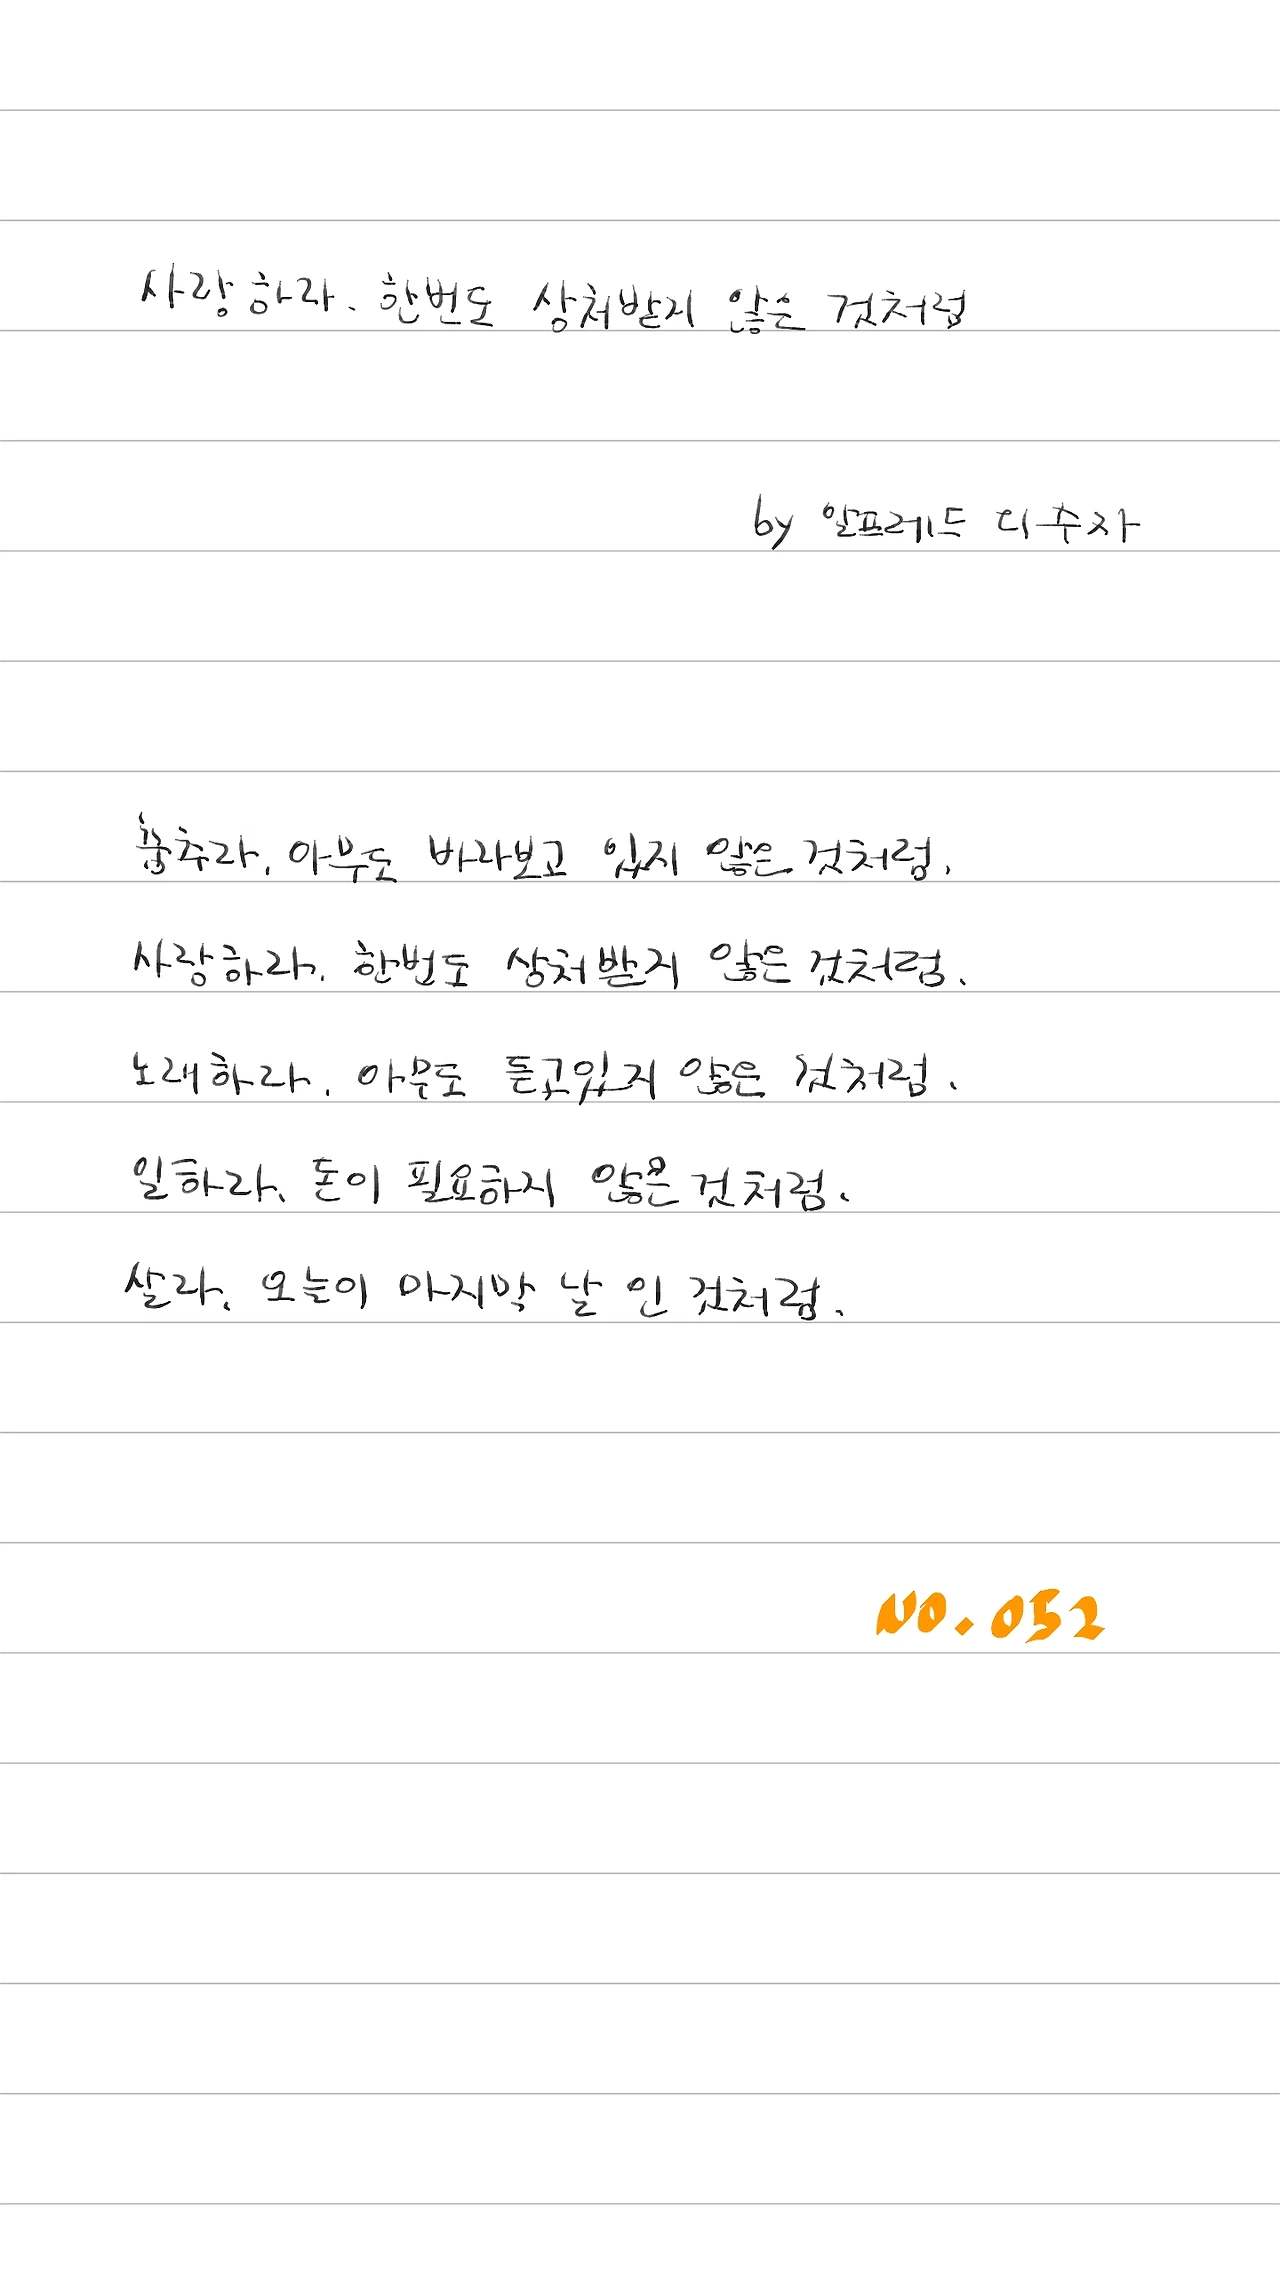 사랑하라. 한번도 상처받지 않은 것처럼
by 알프레드 디 수자
춤추라, 아무도 바라보고 있지 않은 것처럼,
사랑하라, 한번도 상처받지 않은 것처럼,
노래하라, 아무도 듣고있지 않은 것처럼,
일하라, 돈이 필요하지 않은 것처럼,
살라, 오늘이 마지막 날 인 것처럼.
NO.052